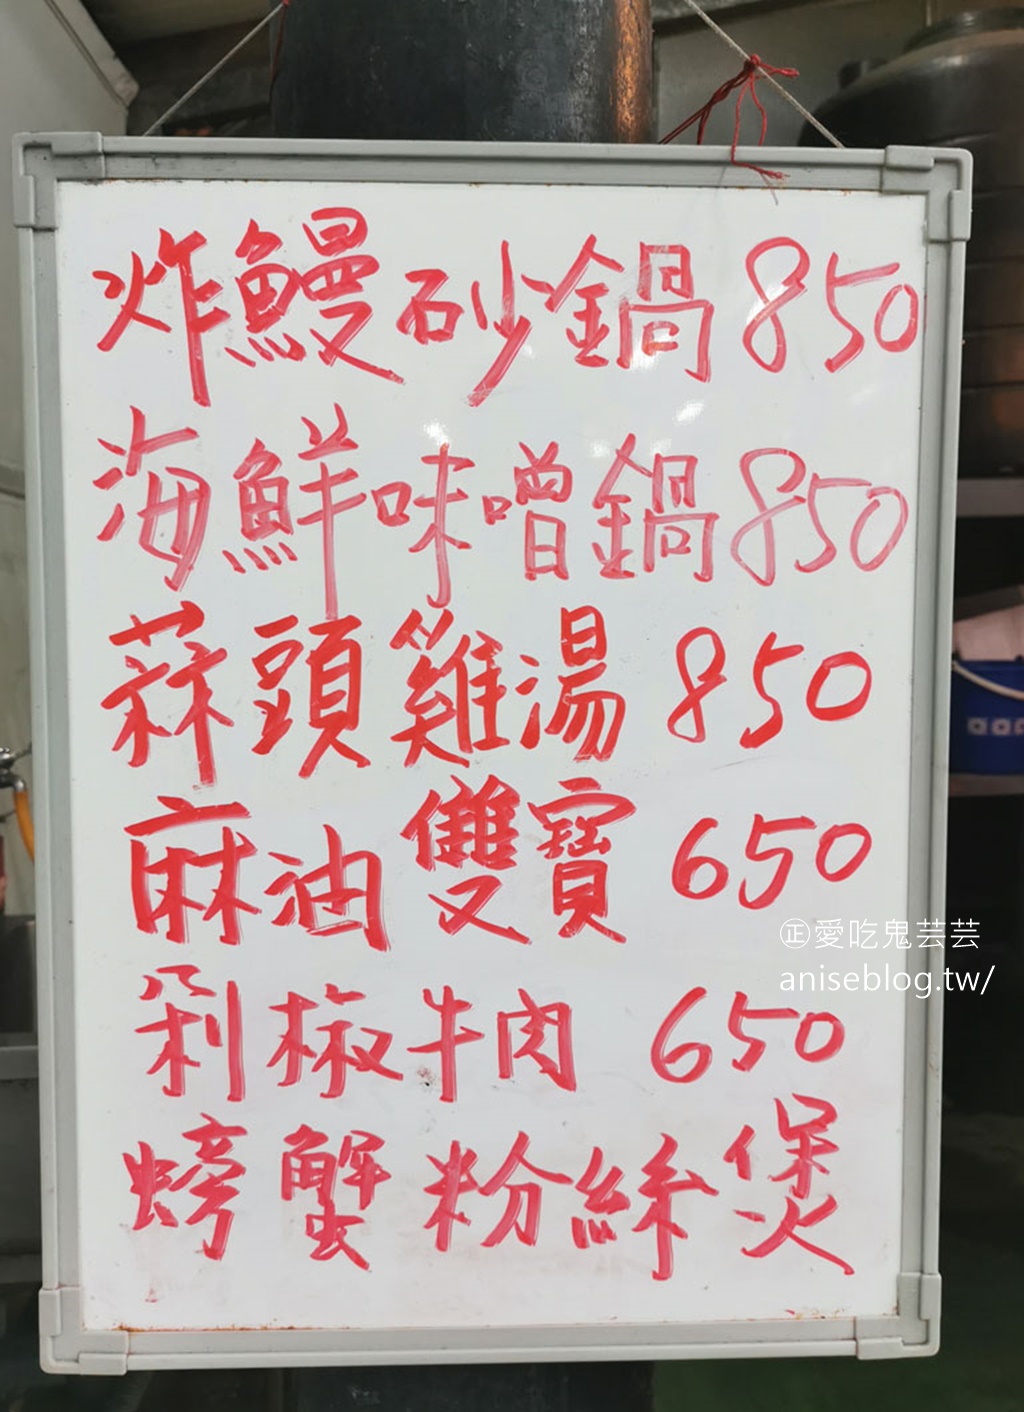 炸鰻砂鍋 850
海鮮味噌鍋 850
蒜頭雞湯 850
麻油雙寶 650
剁椒牛肉 650
螃蟹粉絲煲
㊣愛吃鬼芸芸
aniseblog.tw/